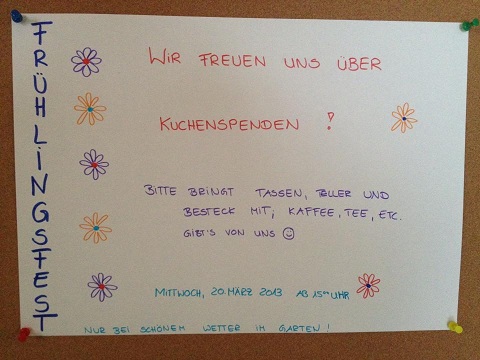 FRÜHLINGSFEST
WIR FREUEN UNS ÜBER
KUCHENSPENDEN !
BITTE BRINGT TASSEN, TELLER UND
BESTECK MIT; KAFFEE, TEE, ETC.
GIBT'S VON UNS ☺
MITTWOCH, 20. MÄRZ 2013 AB 15°° UHR
NUR BEI SCHÖNEM WETTER IM GARTEN !